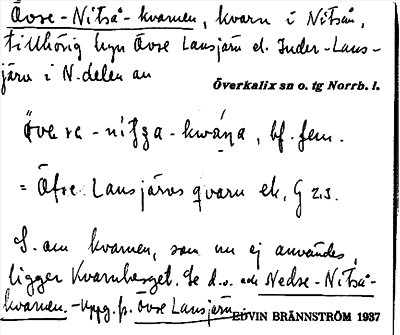 Övse-Nitså-kvarnen, kvarn i Nitsån,
tillhörig byn Övse Lansjärv el. Inder-Lans-
järv i N-delen av
Överkalix sn o. tg Norrb. l.
bf. fem.
= Öfre Lansjärvs qvarn ek. G 23.
S. om kvarnen, som nu ej användes,
ligger Kvarnberget. Se d.o. och Nedse-Nitså-
kvarnen. - Uppg. fr. Övse Lansjärv.
EDVIN BRÄNNSTRÖM 1937